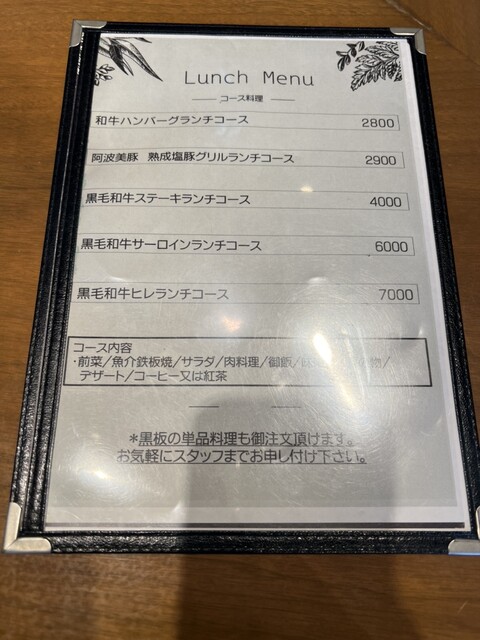 Lunch Menu
コース料理
和牛ハンバーグランチコース 2800
阿波美豚 熟成塩豚グリルランチコース 2900
黒毛和牛ステーキランチコース 4000
黒毛和牛サーロインランチコース 6000
黒毛和牛ヒレランチコース 7000
コース内容
・前菜/魚介鉄板焼/サラダ/肉料理/御飯/物/
デザート/コーヒー又は紅茶
*黒板の単品料理も御注文頂けます。
お気軽にスタッフまでお申し付け下さい。